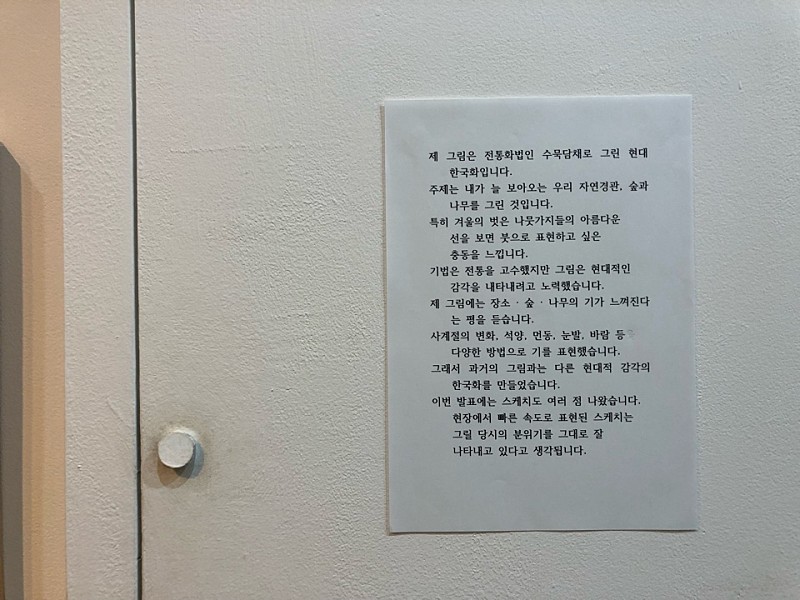 제 그림은 전통화법인 수묵담채로 그린 현대
한국화입니다.
주제는 내가 늘 보아오는 우리 자연경관, 숲과
나무를 그린 것입니다.
특히 겨울의 벗은 나뭇가지들의 아름다운
선을 보면 붓으로 표현하고 싶은
충동을 느낍니다.
기법은 전통을 고수했지만 그림은 현대적인
감각을 내타내려고 노력했습니다.
제 그림에는 장소 · 숲 · 나무의 기가 느껴진다
는 평을 듣습니다.
사계절의 변화, 석양, 먼동, 눈발, 바람 등
다양한 방법으로 기를 표현했습니다.
그래서 과거의 그림과는 다른 현대적 감각의
한국화를 만들었습니다.
이번 발표에는 스케치도 여러 점 나왔습니다.
현장에서 빠른 속도로 표현된 스케치는
그릴 당시의 분위기를 그대로 잘
나타내고 있다고 생각됩니다.